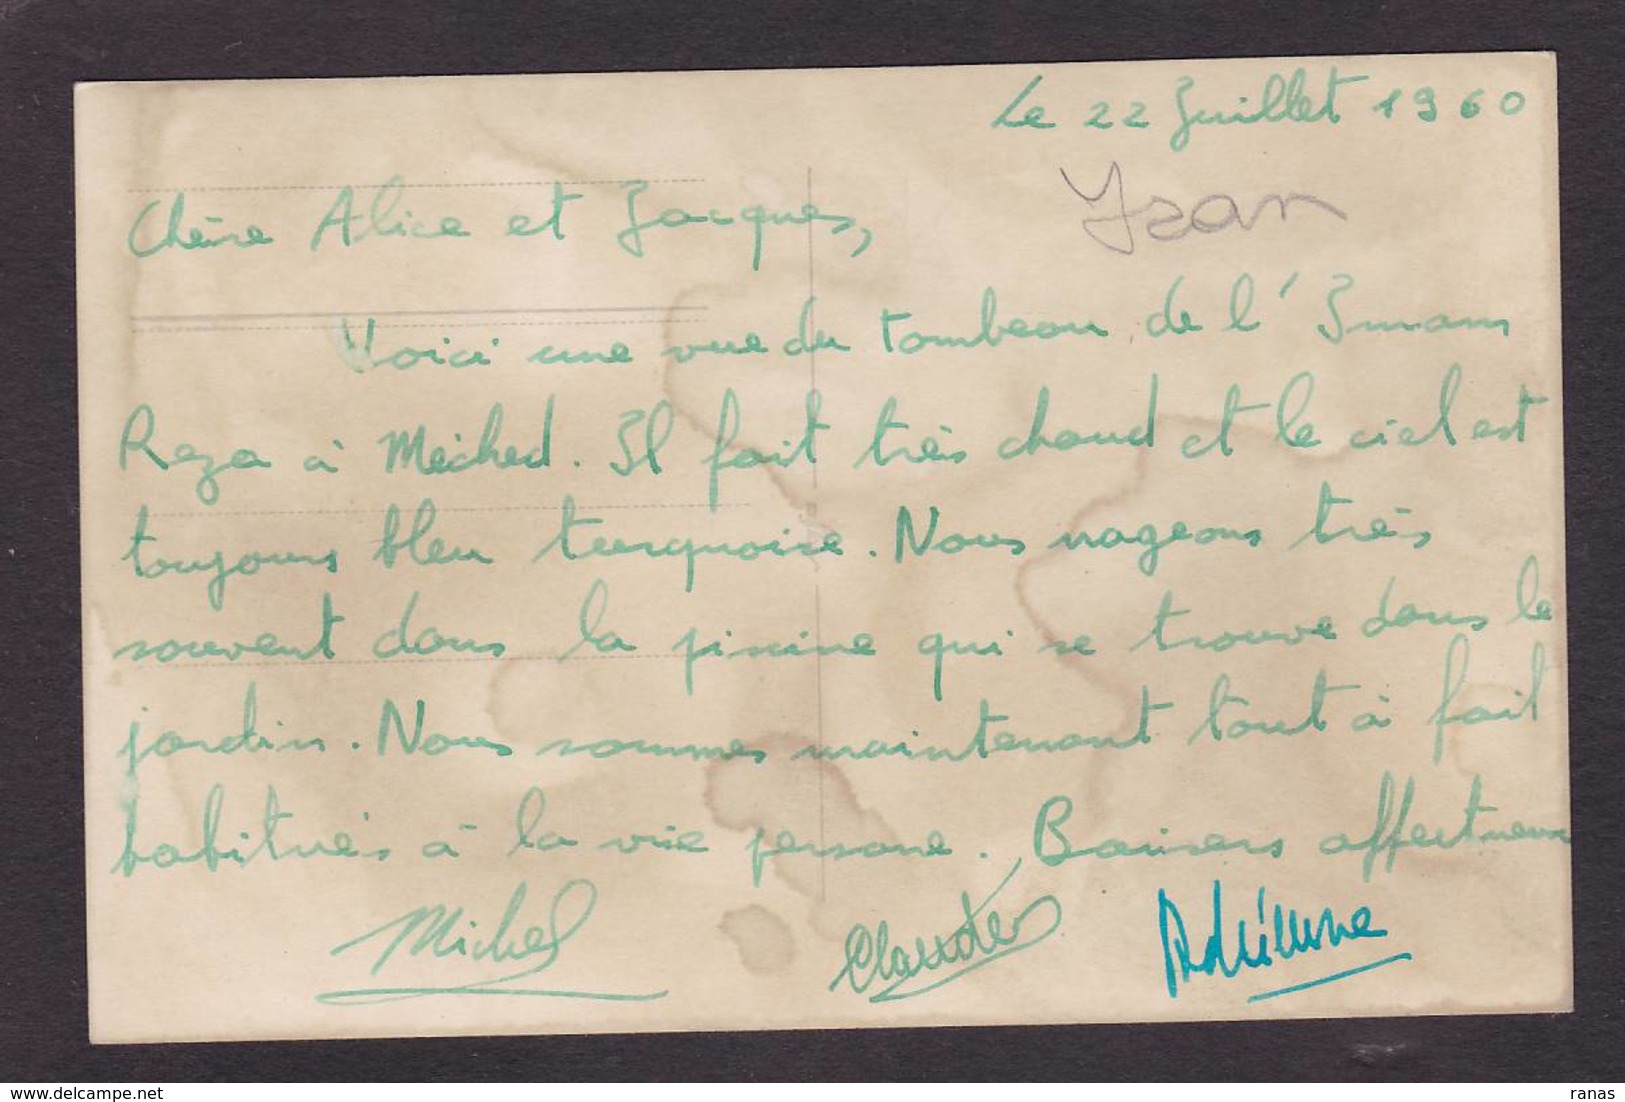 Le 22 Juillet 1960
Iran
Chère Alice et Jacques,
Voici une vue du tombeau de l'Imam
Reza à Méched. Il fait très chaud et le ciel est
toujours bleu turquoise. Nous nageons très
souvent dans la piscine qui se trouve dans le
jardin. Nous sommes maintenant tout à fait
habitués à la vie persane. Baisers affectueux
Michel Claude Adrienne
www.delcampe.net
ranas